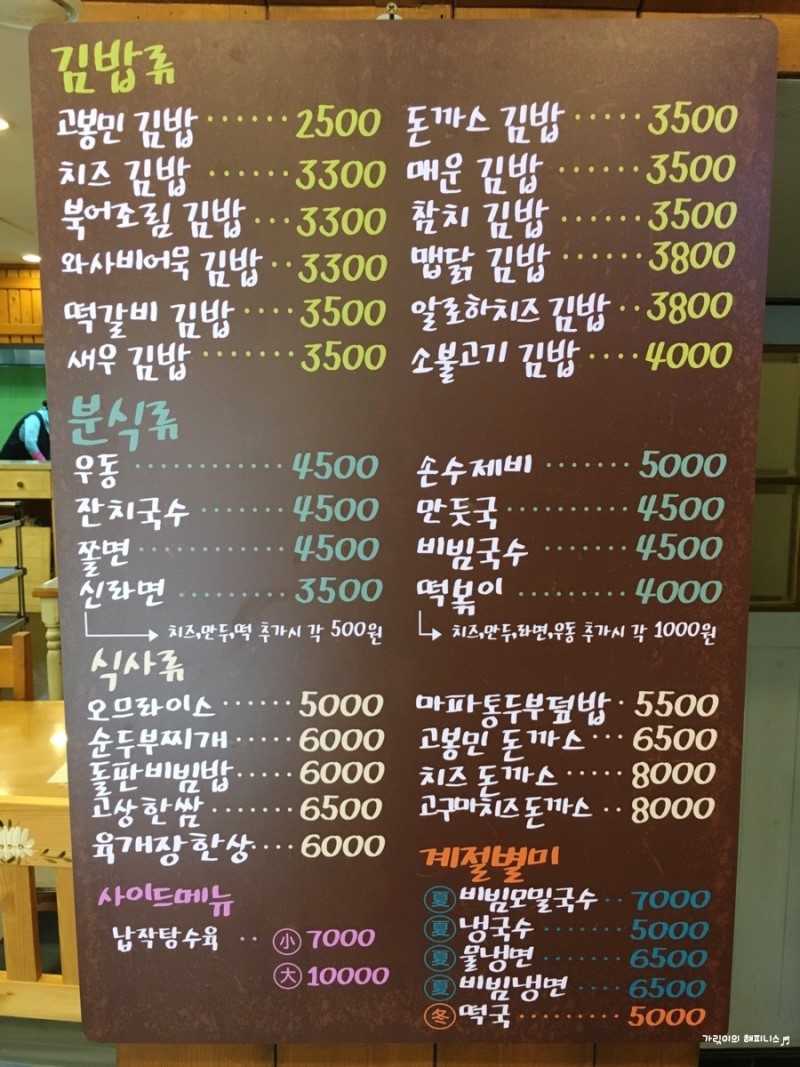 김밥류
고봉민 김밥 ······ 2500
치즈 김밥 ······ 3300
북어조림 김밥 ··· 3300
와사비어묵 김밥 ·· 3300
떡갈비 김밥 ···· 3500
새우 김밥 ······· 3500
돈까스 김밥 ····· 3500
매운 김밥 ······ 3500
참치 김밥 ······ 3500
맵닭 김밥 ······ 3800
알로하치즈 김밥 ·· 3800
소불고기 김밥 ···· 4000
분식류
우동 ············ 4500
잔치국수 ······· 4500
쫄면 ············ 4500
신라면 ·········· 3500
치즈,만두,떡 추가시 각 500원
손수제비 ······· 5000
만둣국 ·········· 4500
비빔국수 ········ 4500
떡볶이 ·········· 4000
치즈,만두,라면,우동 추가시 각 1000원
식사류
오므라이스 ······ 5000
순두부찌개 ····· 6000
돌판비빔밥 ····· 6000
고상한쌈 ······· 6500
육개장한상 ···· 6000
마파통두부덮밥 · 5500
고봉민 돈까스 ··· 6500
치즈 돈까스 ····· 8000
고구마치즈돈까스 ·· 8000
사이드메뉴
납작탕수육 ·· 小 7000
大 10000
계절별미
夏 비빔모밀국수 ·· 7000
夏 냉국수 ······ 5000
夏 물냉면 ······ 6500
夏 비빔냉면 ···· 6500
冬 떡국 ········· 5000
가릿이의 해피니스♬